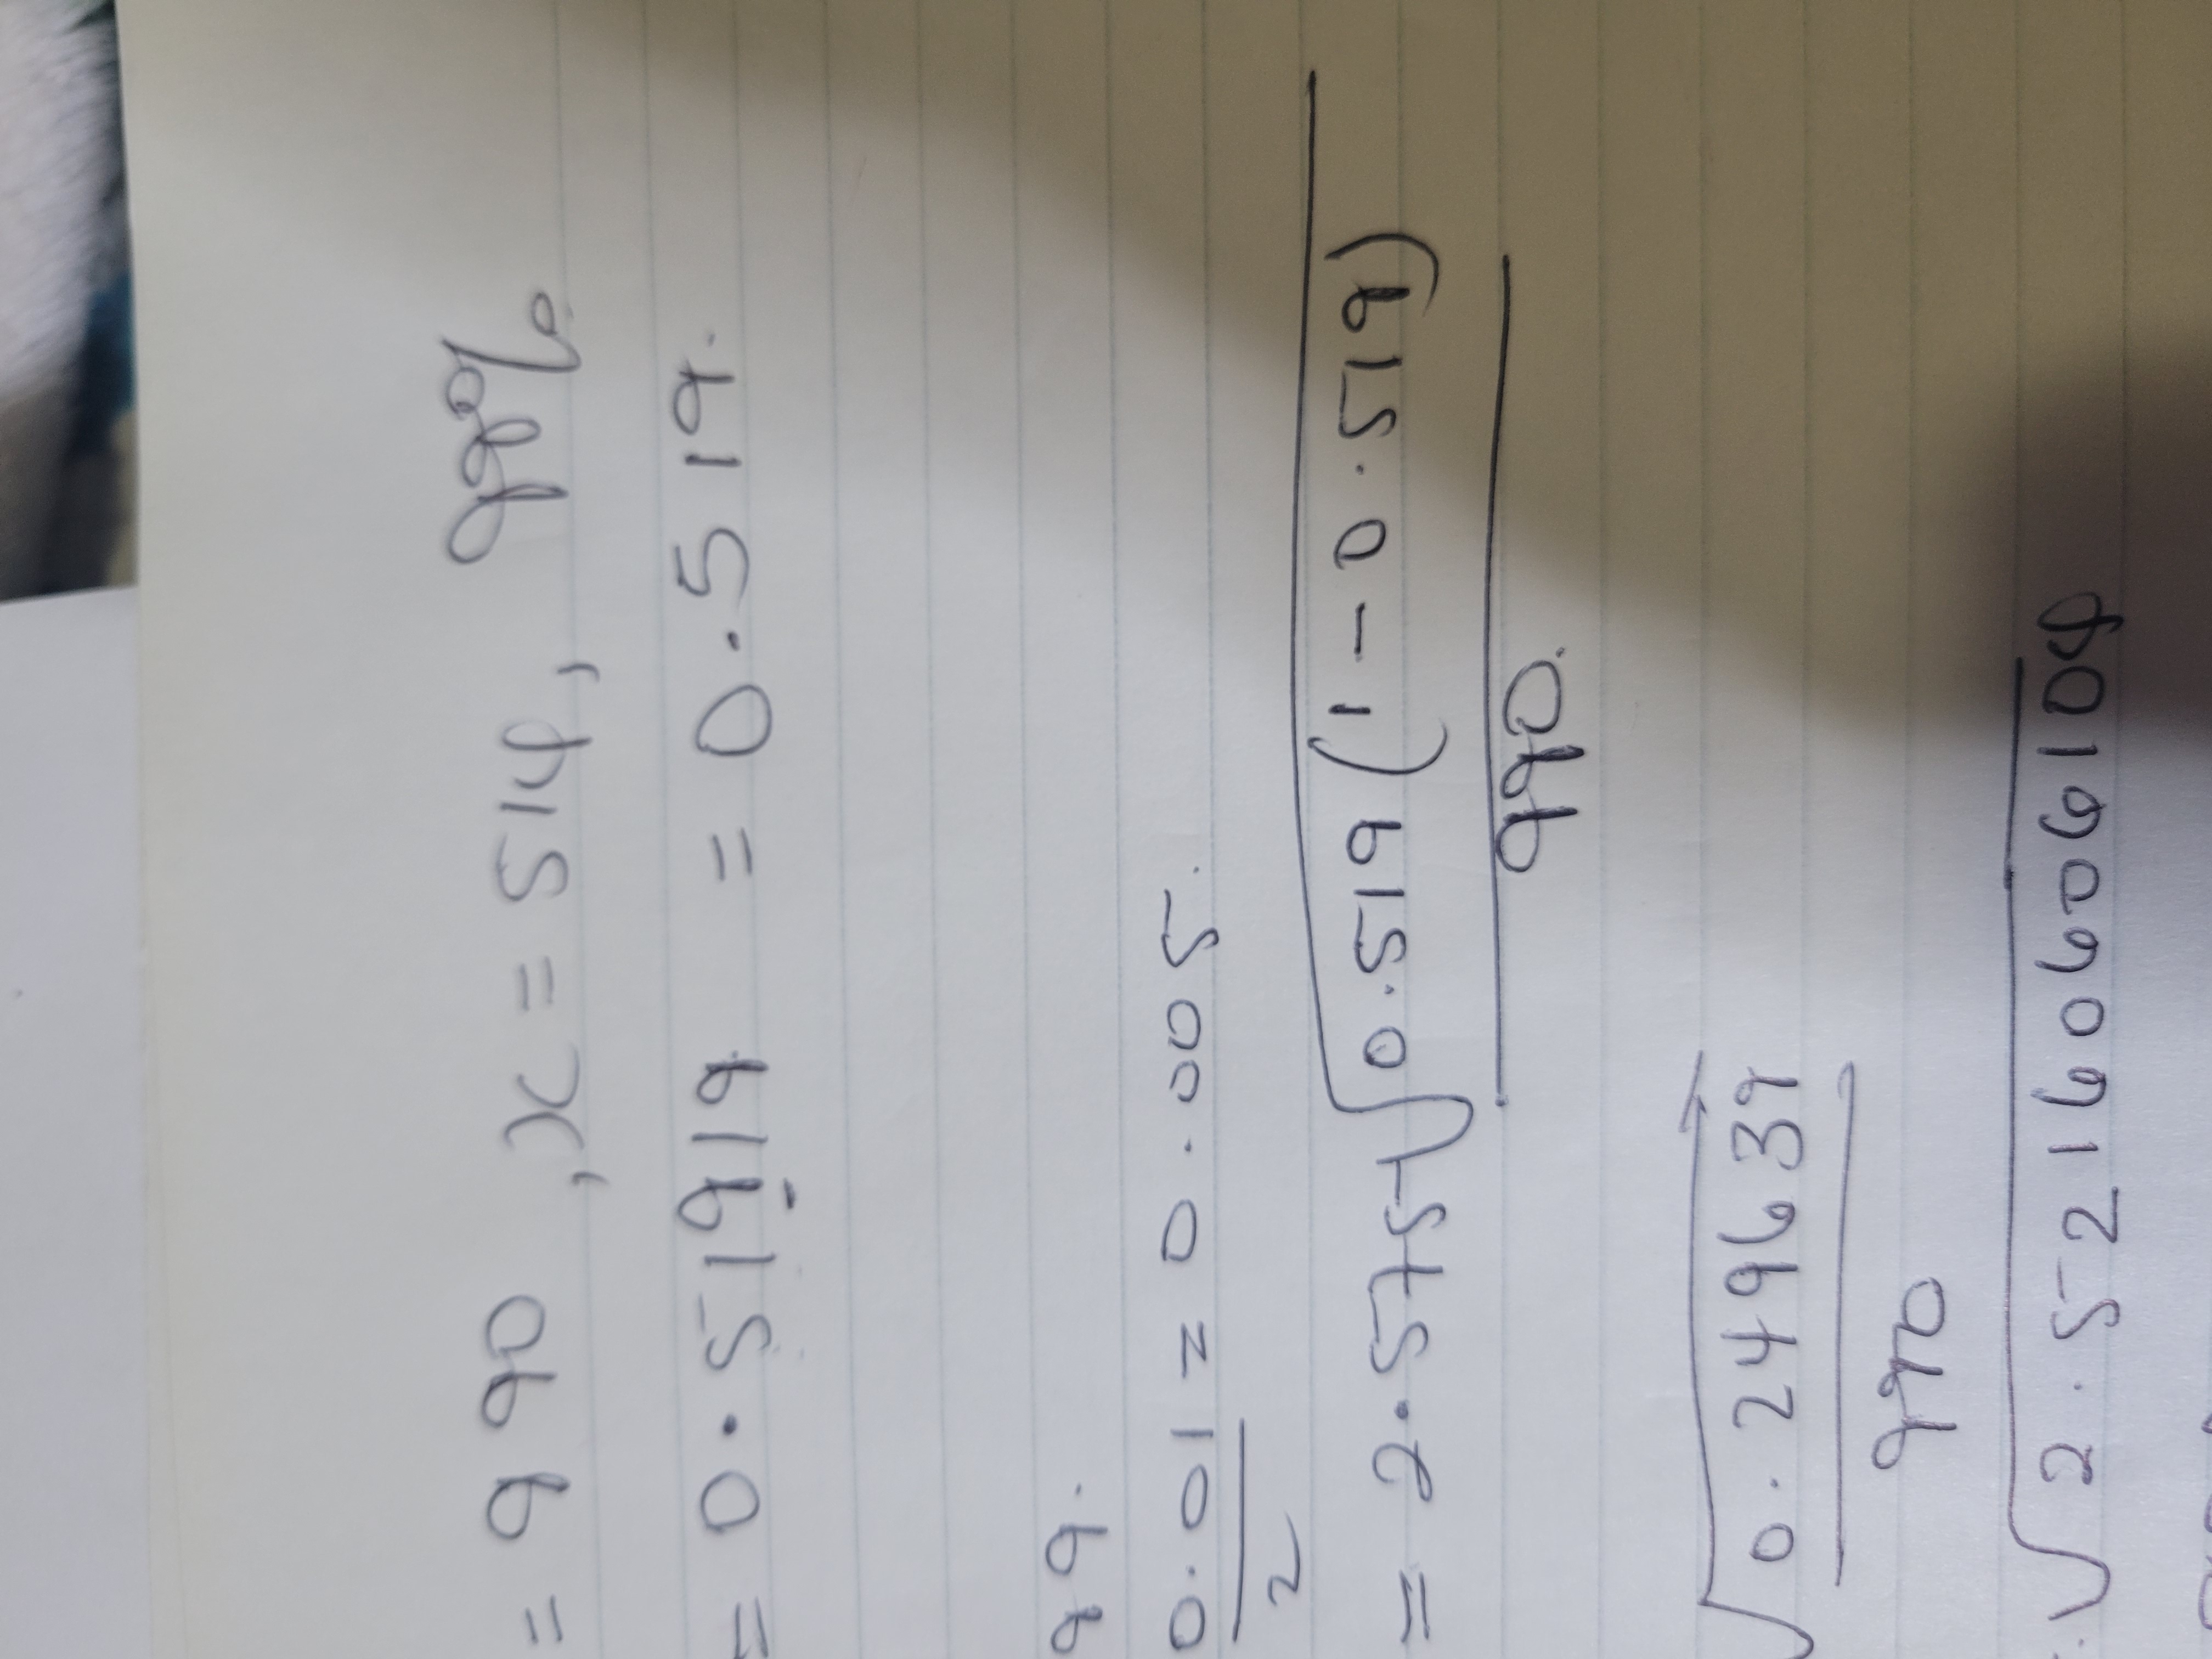 = 990, x = 514, 99%
= 0.51919 = 0.519.
99.
0.01 = 0.005.
2
= 2.575 √0.519(1-0.519)
990.
√0.249639
990
√2.52160606104